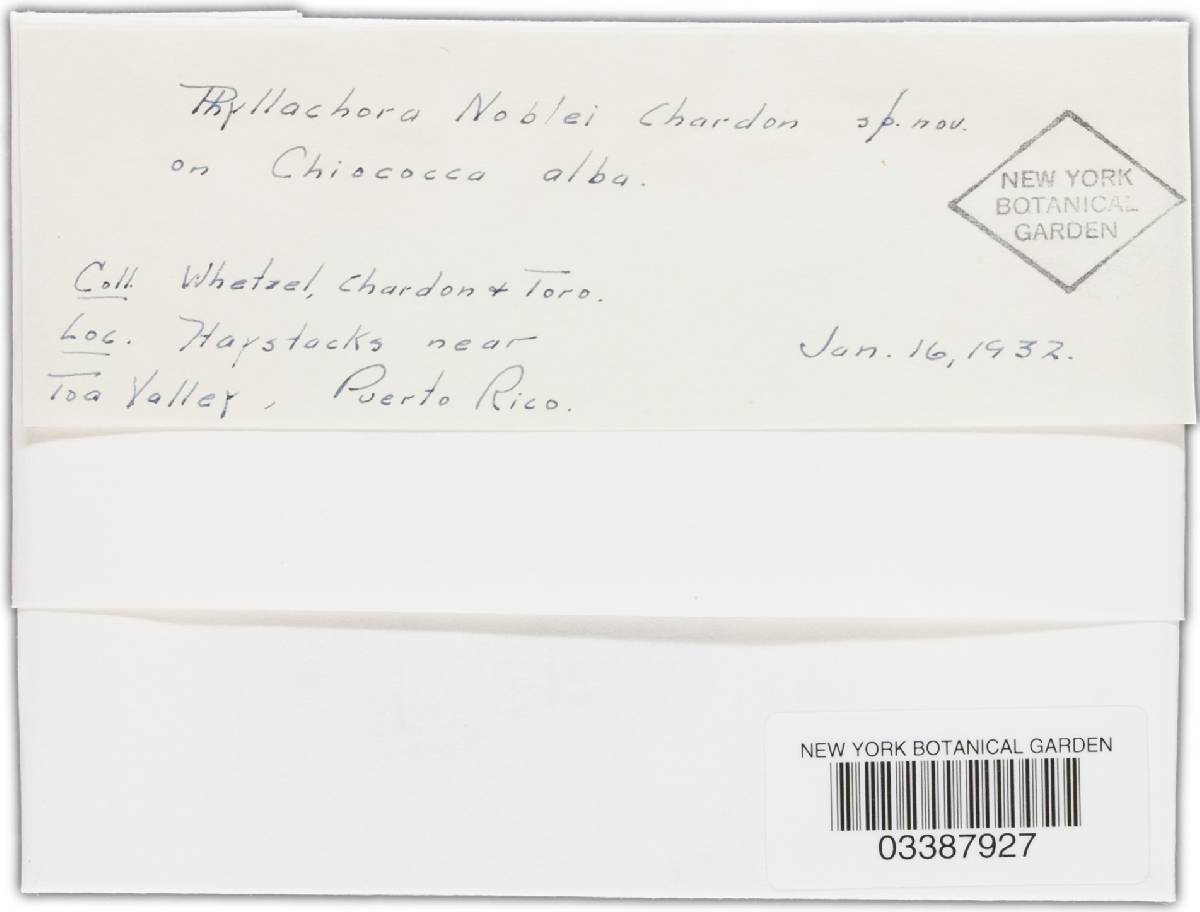 Phyllachora Noblei Chardon sp. nov.
on Chiococca alba.
NEW YORK
BOTANICAL
GARDEN
Coll. Whetzel, Chardon + Toro.
Loc. Haystacks near
Jan. 16, 1932.
Toa Valley, Puerto Rico.
NEW YORK BOTANICAL GARDEN
03387927